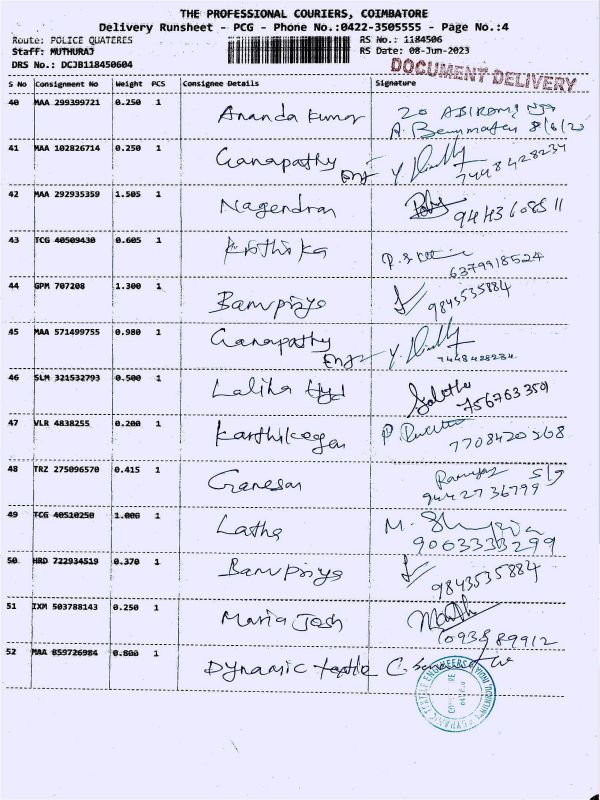 THE PROFESSIONAL COURIERS, COIMBATORE
Delivery Runsheet - PCG - Phone No.:0422-3505555 - Page No.:4
Route: POLICE QUATERES
RS No.: 1184506
Staff: MUTHURAJ
RS Date: 08-Jun-2023
DRS No.: DCJB118450604
DOCUMENT DELIVERY
S No Consignment No Weight PCS Consignee Details Signature
40 MAA 299399721 0.250 1 Ananda kumar 20
8/6/20
41 MAA 102826714 0.250 1 Ganapathy
Engr 7448428234
42 MAA 292935359 1.505 1 Nagendran 9443608511
43 TCG 40509430 0.605 1 Krithika
6379918524
44 GPM 707208 1.300 1 Banupriya 9843535884
45 MAA 571499755 0.980 1 Ganapathy
Engr 7448428234
46 SLM 321532793 0.500 1 Lalitha
756763 3501
47 VLR 4838255 0.200 1 Karthikeyan P.
7708420268
48 TRZ 275096570 0.415 1 Ganesan
94427 36799
49 TCG 40510250 1.000 1 Latha M.
9003333299
50 HRD 722934519 0.370 1 Banupriya 9843535884
51 IXM 503788143 0.250 1 Maria Josh
52 MAA 859726984 0.800 1 Dynamic textile